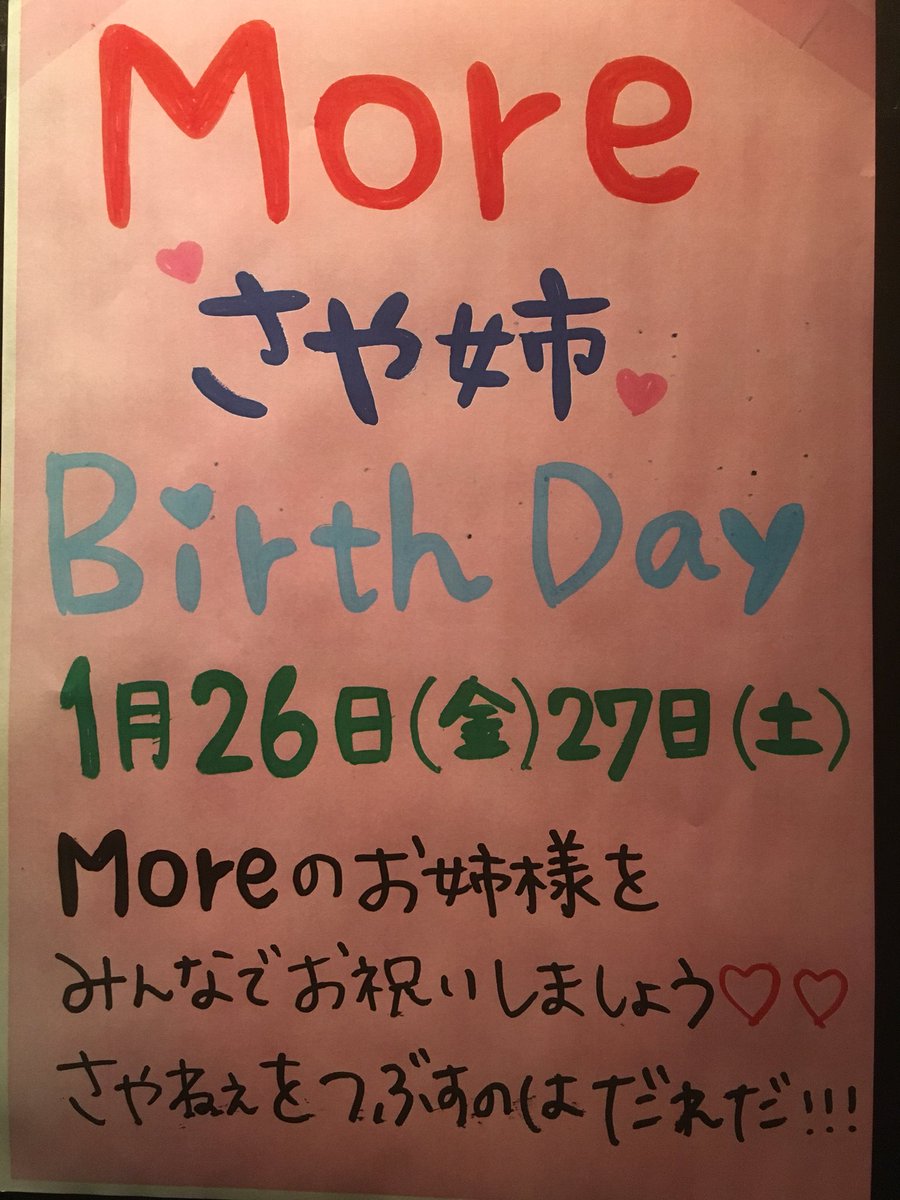 More
さや姉
Birth Day
1月26日(金)27日(土)
Moreのお姉様を
みんなでお祝いしましょう♡♡
さやねぇをつぶすのはだれだ!!!